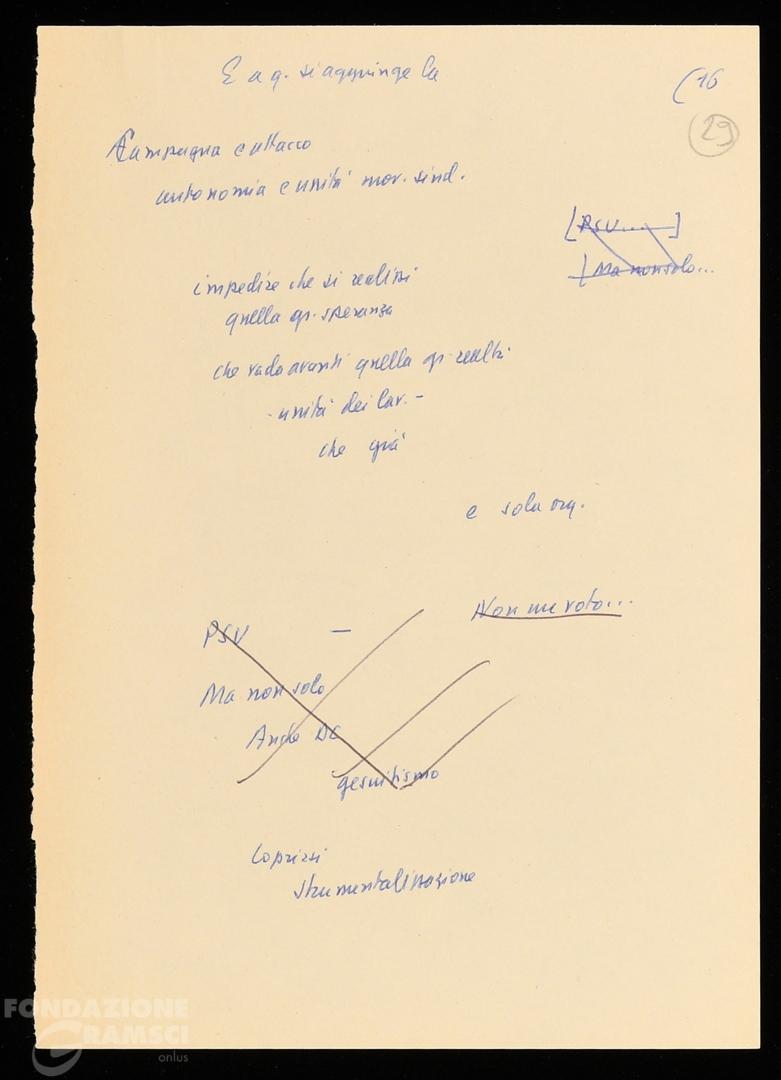 E a q. si aggiunge la
(16
29
Campagna e attacco
autonomia e unità mov. sind.
[PSU....]
[Ma non solo...
impedire che si realizzi
quella gr. speranza
che vada avanti quella gr. realtà
- unità dei lav. -
che già
e sola org.
Non me voto...
PSU —
Ma non solo
Anche DC
gesuitismo
Coprirsi
strumentalizzazione
FONDAZIONE
GRAMSCI
onlus